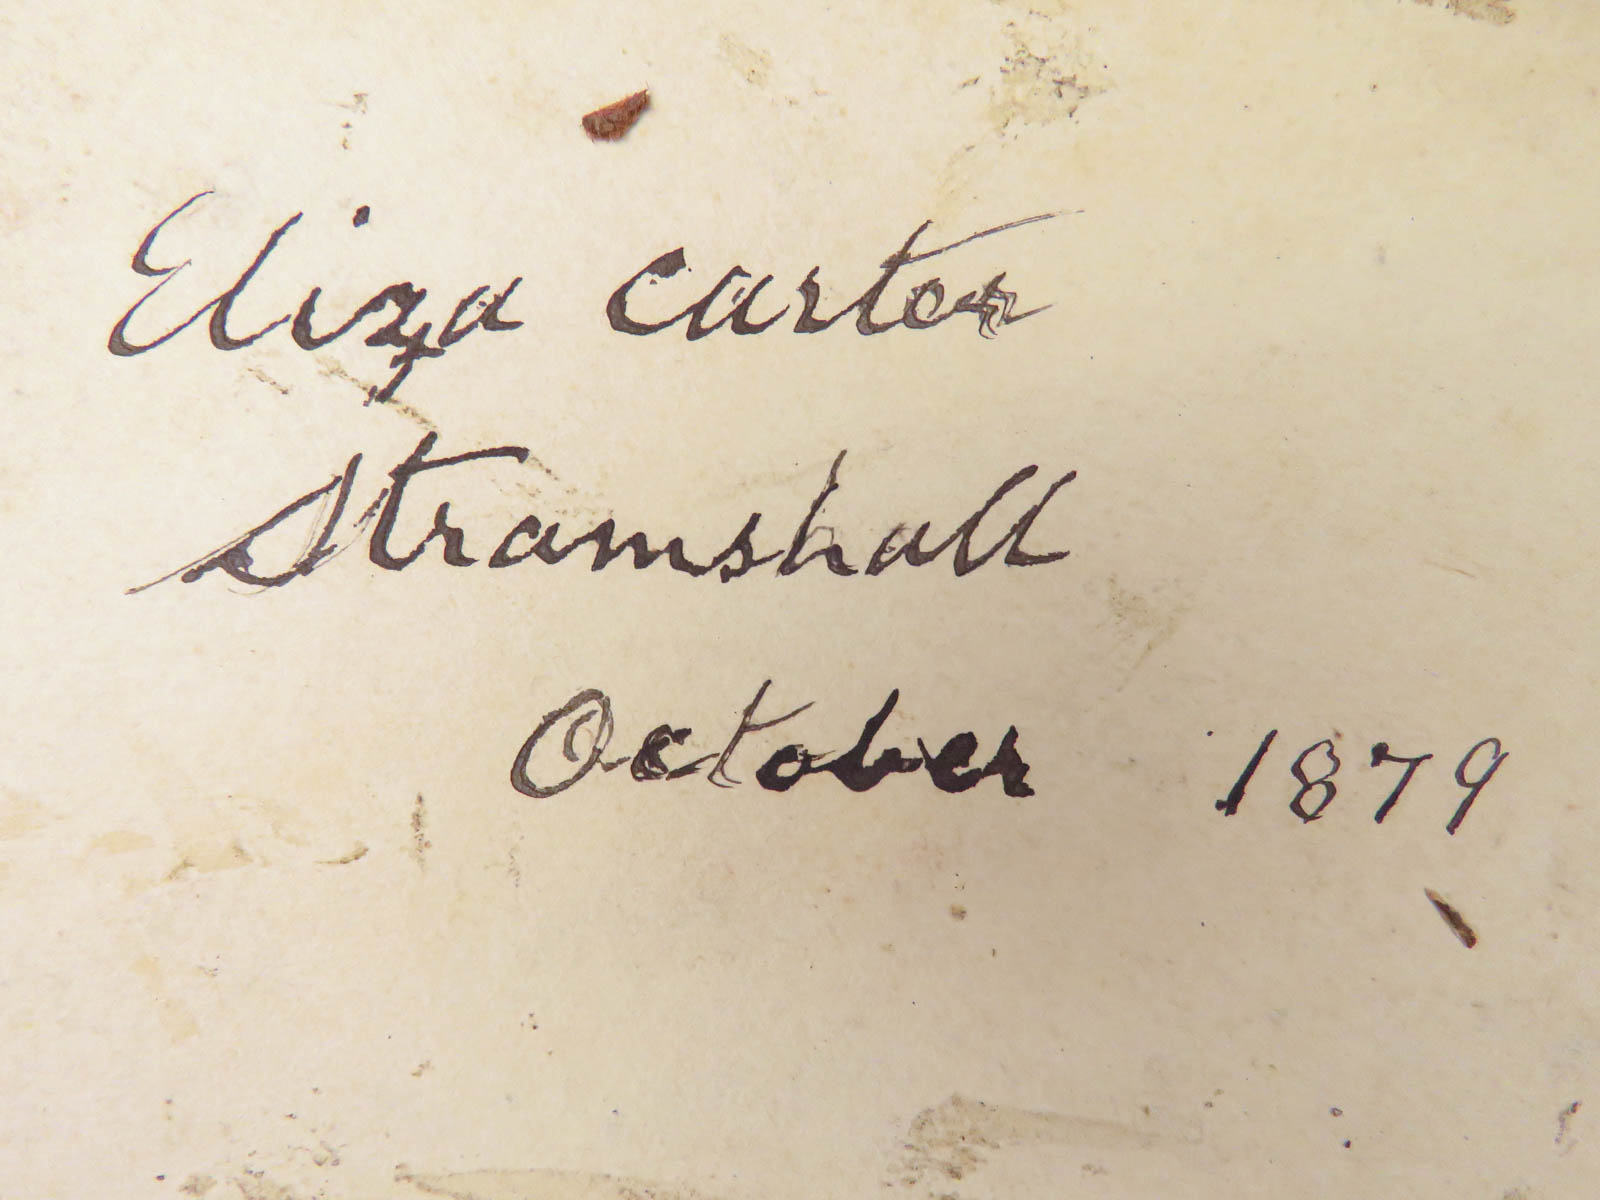 Eliza Carter
Stramshall
October 1879